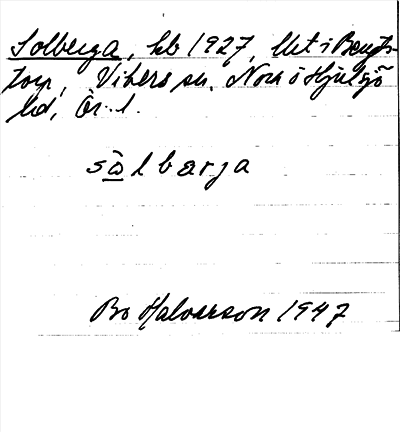 Solberga, hb 1927, Ut i Bengts-
torp, Vikers sn. Nora o Hjulsjö
hd, Ör. l.
sòlbærja
Bo Halvarson 1947